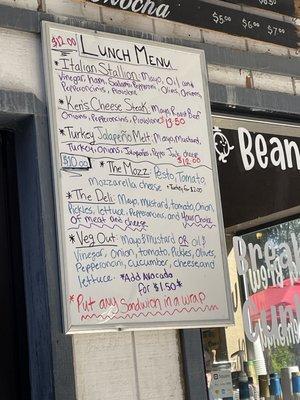 Mocha
5.00 6.00 7.00
$12.00 LUNCH MENU
*Italian Stallion: Mayo, Oil and
Vinegar, Ham, Salami, Pepperoni, Olives, Onions,
Pepperoncinis, Provolone
*Ken's Cheese Steak: Mayo, Roast Beef
Onions, Pepperoncinis, Provolone $13.50
*Turkey Jalapeño Melt: Mayo, Mustard,
Turkey, Onions, Jalapeños, Pepper Jack cheese
$10.00 $12.00
*The Mozz: Pesto, Tomato,
Mozzarella cheese *Turkey for $2.00
*The Deli: Mayo, Mustard, tomato, Onion,
Pickles, lettuce, Pepperoncinis, and Your Choice
of meat and cheese
*Veg Out: Mayo & Mustard OR oil &
Vinegar, Onion, tomato, Pickles, Olives,
Pepperoncini, cucumber, cheese, and
lettuce. *Add Avocado
for $1.50*
*Put any Sandwich in a wrap
Bean
Breakfast
Lunch